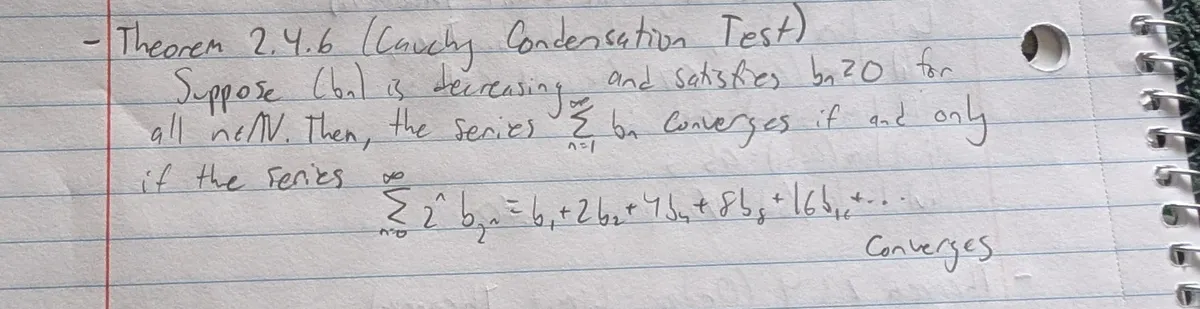 - Theorem 2.4.6 (Cauchy Condensation Test)
Suppose (bn) is decreasing and satisfies bn ≥ 0 for
all n∈ℕ. Then, the series ∑_{n=1}^{∞} bn converges if and only
if the series
∑_{n=0}^{∞} 2^n b_{2^n} = b₁ + 2b₂ + 4b₄ + 8b₈ + 16b₁₆ + ...
Converges